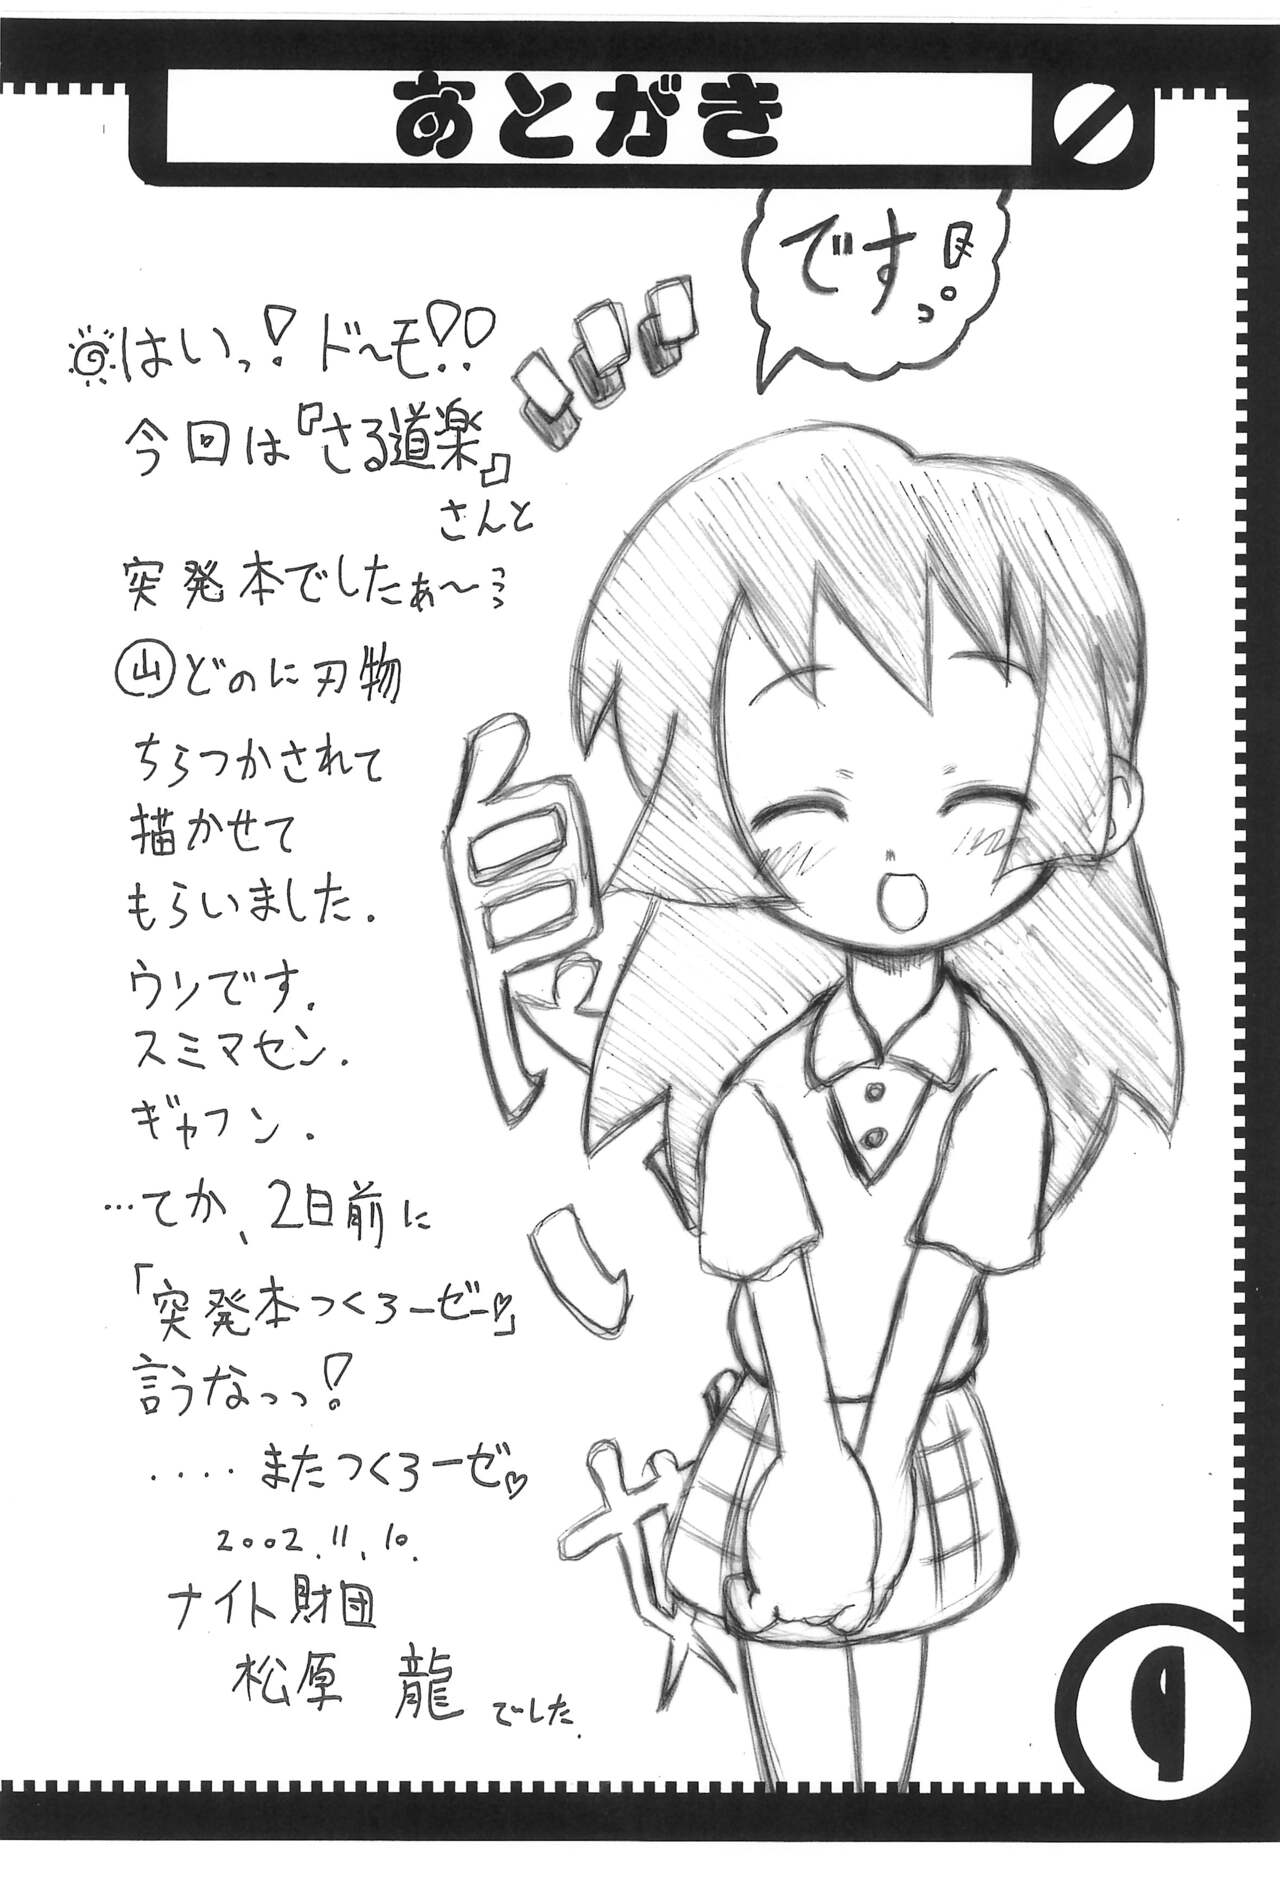 あとがき
ですっ。
はいっ!ド〜モ!!
今回は『さる道楽』
さんと
突発本でしたぁ〜
山どのに刃物
ちらつかされて
描かせて
もらいました.
ウソです.
スミマセン.
ギャフン.
…てか、2日前に
「突発本つくろーぜー♡」
言うなっっ!
....またつくろーぜ♡
2002.11.10.
ナイト財団
松原 龍 でした.
9